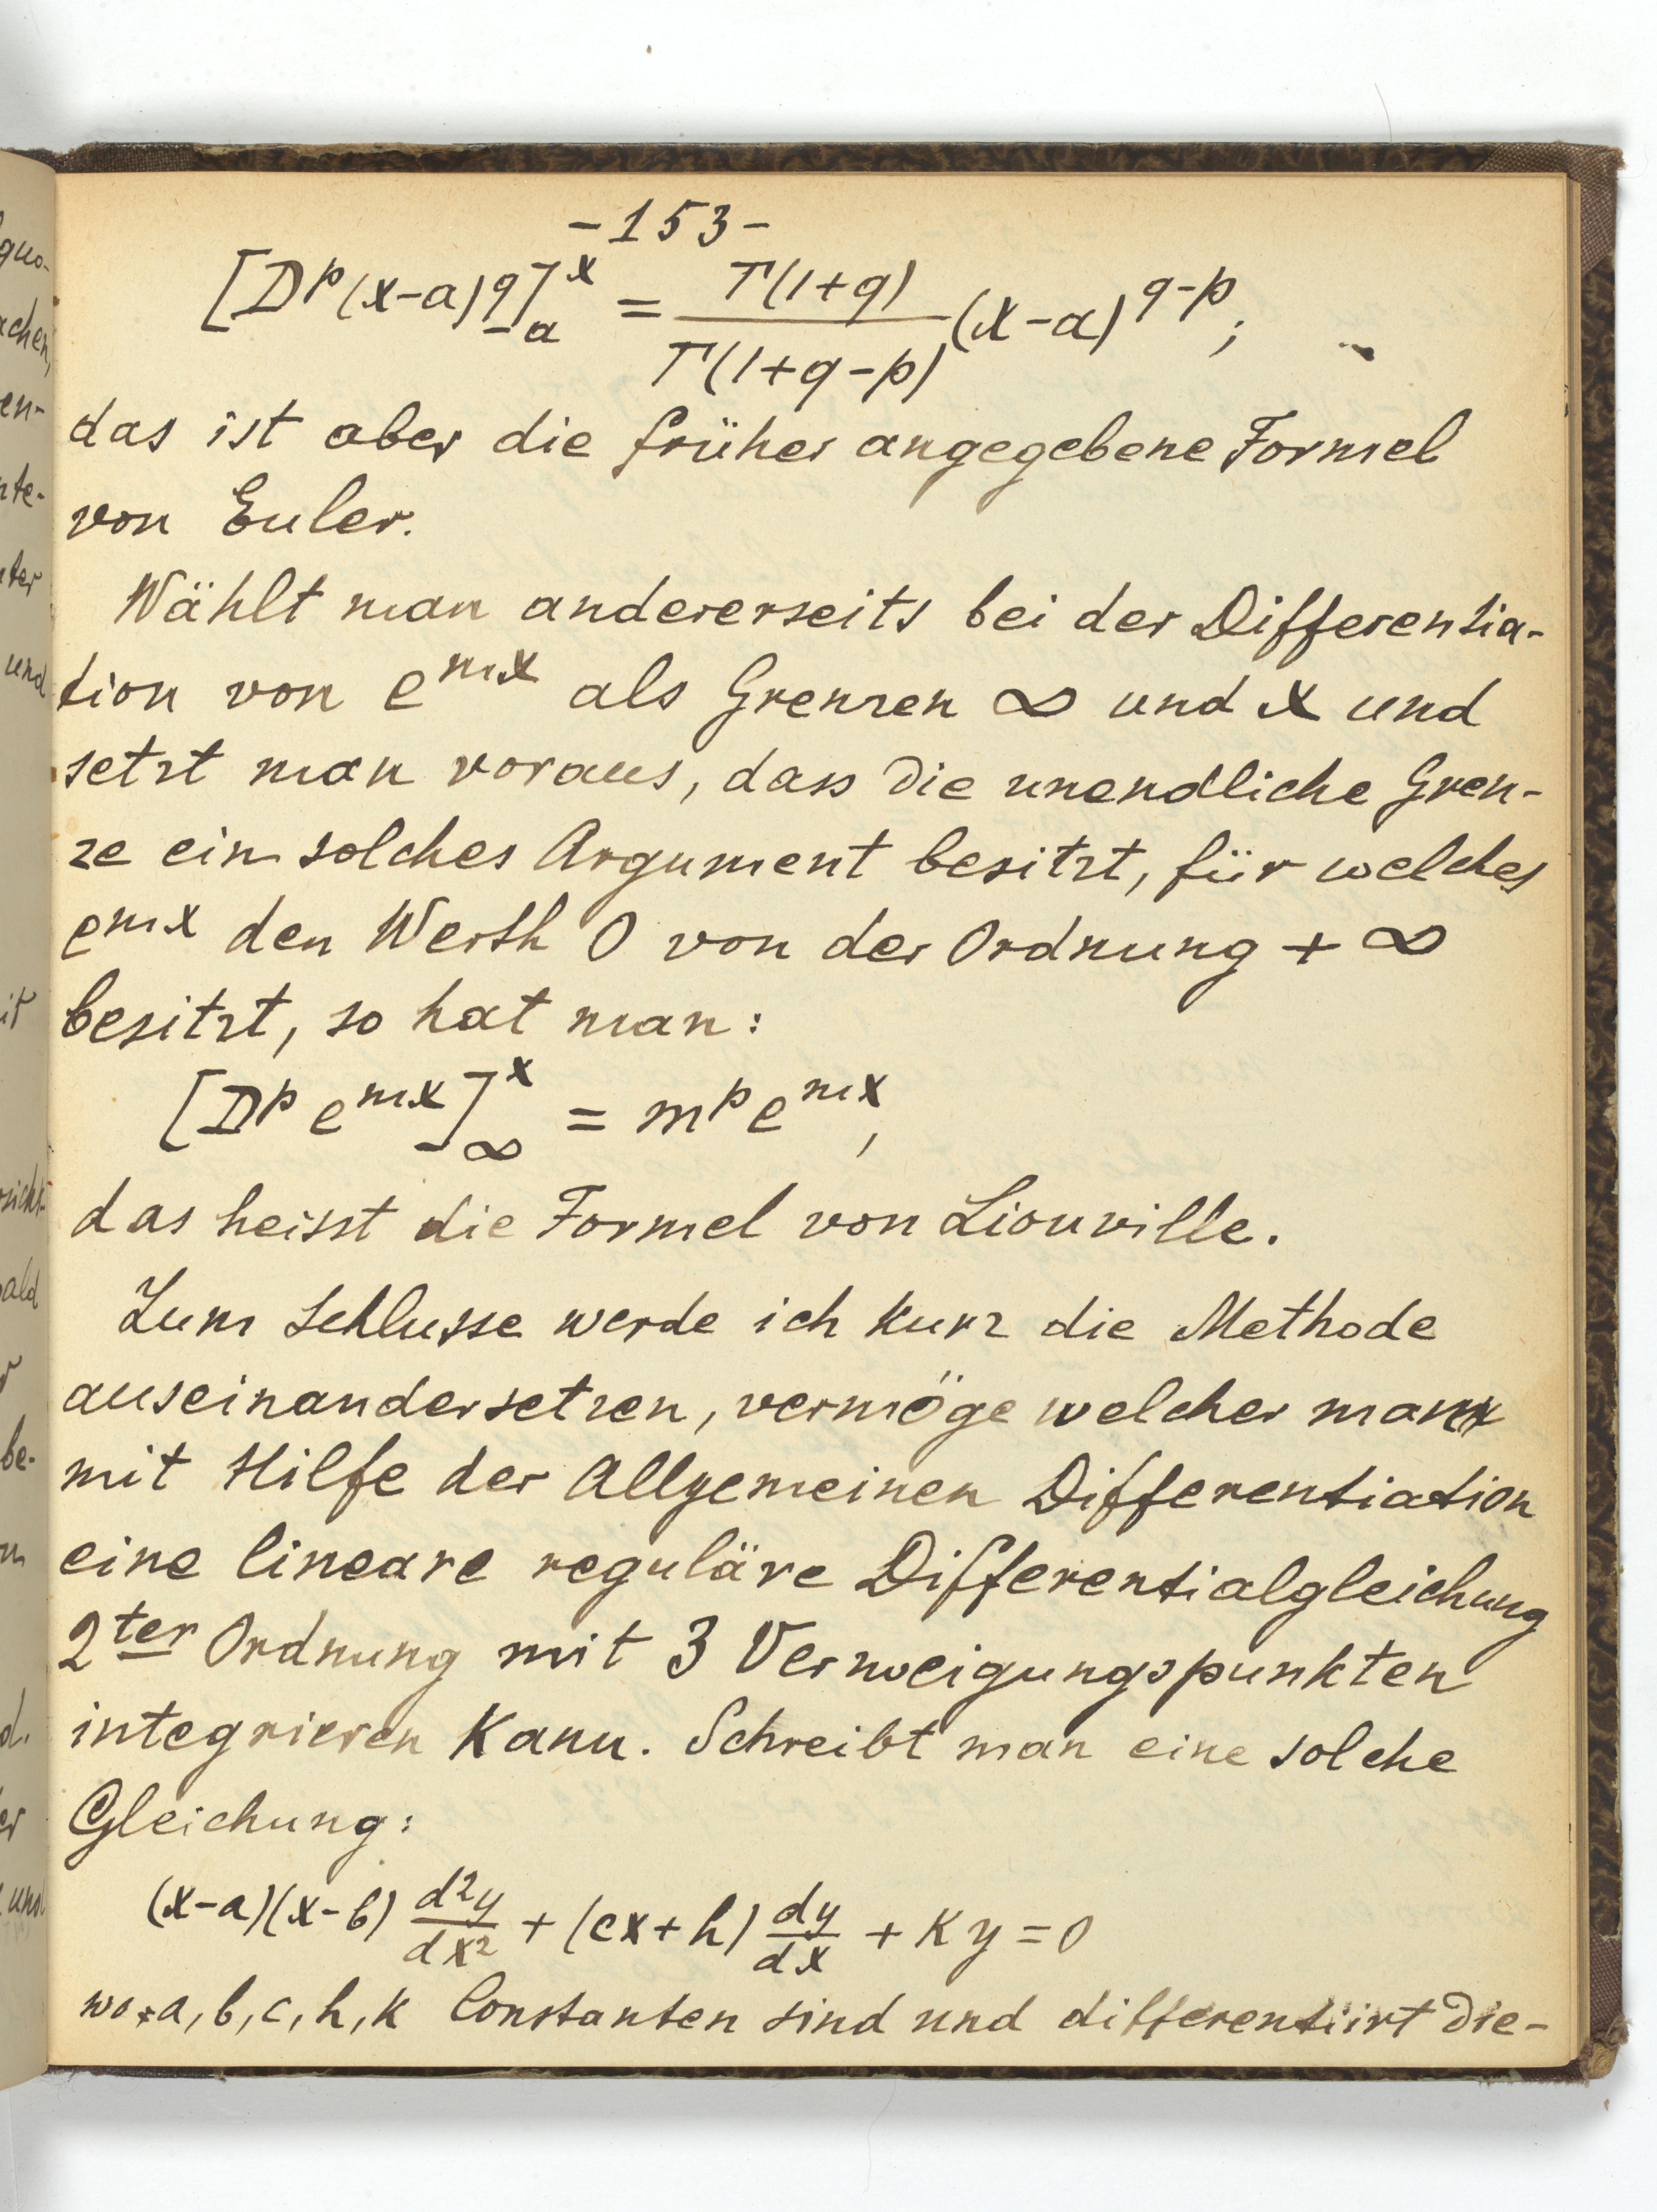 -153-
[D^p (x-a)^q]_a^x = Γ(1+q)/Γ(1+q-p) (x-a)^{q-p};
das ist aber die früher angegebene Formel
von Euler.
Wählt man andererseits bei der Differentia-
tion von e^{mx} als Grenzen ∞ und x und
setzt man voraus, dass die unendliche Gren-
ze ein solches Argument besitzt, für welches
e^{mx} den Werth 0 von der Ordnung +∞
besitzt, so hat man:
[D^p e^{mx}]_∞^x = m^p e^{mx},
das heisst die Formel von Liouville.
Zum Schlusse werde ich kurz die Methode
auseinandersetzen, vermöge welcher man
mit Hilfe der Allgemeinen Differentiation
eine lineare reguläre Differentialgleichung
2ter Ordnung mit 3 Verzweigungspunkten
integrieren kann. Schreibt man eine solche
Gleichung:
(x-a)(x-b) d²y/dx² + (cx+h) dy/dx + ky = 0
wo a, b, c, h, k Constanten sind und differentiirt die-